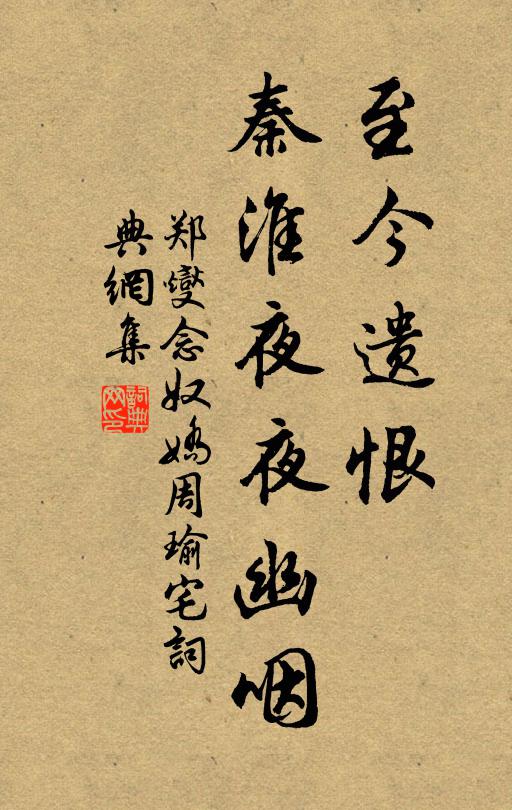 至今遗恨
秦淮夜夜幽咽
郑燮念奴嬌周瑜宅詞
典網集
詞典网印